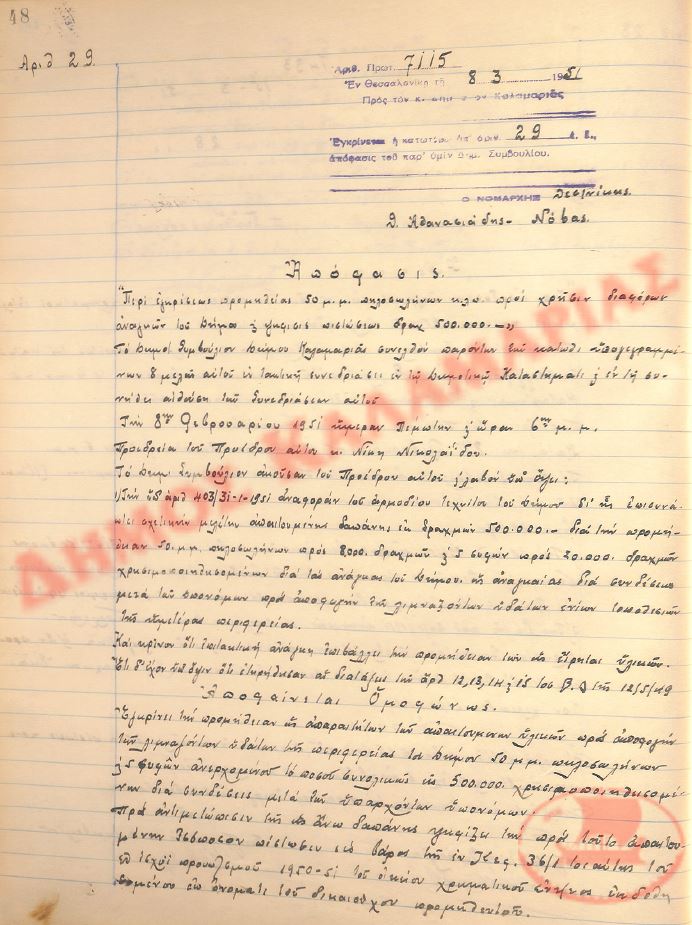 48
Αριθ 29.
Αριθ. Πρωτ. 7115
Ἐν Θεσσαλονίκῃ τῇ 8 3 1951
Πρὸς τὸν κ. Καλαμαριᾶς
Ἐγκρίνεται ἡ κατωτέρω ὑπ' ἀριθ. 29 ἀ. ἔ.,
ἀπόφασις τοῦ παρ' ὑμῖν Δημ. Συμβουλίου.
Ο ΝΟΜΑΡΧΗΣ Θεσ/νίκης
Θ. Ἀθανασιάδης - Νόβας.
Ἀπόφασις.
"Περὶ ἐγκρίσεως προμηθείας 50 μ.μ. πηλοσωλήνων κλπ πρὸς χρῆσιν διαφόρων
ἀναγκῶν τοῦ Δήμου ψήφισις πιστώσεως δραχ 500.000.-"
Τὸ Δημοτ Συμβούλιον Δήμου Καλαμαριᾶς συνελθὸν παρόντων τῶν κάτωθι ὑπογεγραμμέ-
νων 8 μελῶν αὐτοῦ ἐν τακτικῇ συνεδριάσει ἐν τῷ Δημοτικῷ Καταστήματι ἐν τῇ συ-
νήθει αἰθούσῃ τῶν Συνεδριάσεων αὐτοῦ
Τὴν 8ην Φεβρουαρίου 1951 ἡμέραν Πέμπτην ὥραν 6ην μ.μ.
Προεδρεία τοῦ Προέδρου αὐτοῦ κ. Νίκη Νικολαΐδου.
Τὸ Δημ. Συμβούλιον ἀκοῦσαν τοῦ Προέδρου αὐτοῦ λαβὸν ὑπ' ὄψει:
Τὴν ὑπ' ἀριθ 403/31-1-1951 ἀναφορὰν τοῦ ἁρμοδίου τεχνίτου τοῦ Δήμου δι' ἧς ἐπισυνά-
πτει σχετικὴν μελέτην ἀπαιτουμένης δαπάνης ἐκ δραχμῶν 500.000.- διὰ τὴν προμή-
θειαν 50 μ.μ. πηλοσωλήνων πρὸς 8000 δραχμῶν 5 σιφῶν πρὸς 20.000 δραχμῶν
χρησιμοποιηθησομένων διὰ τὰς ἀνάγκας τοῦ Δήμου ὡς ἀναγκαίας διὰ συνδέσεις
μετὰ τῶν ὑπονόμων πρὸς ἀποφυγὴν τῶν λιμναζόντων ὑδάτων ἐνίων τοποθεσιῶν
τῆς ἡμετέρας περιφερείας.
Καὶ κρῖνον ὅτι ἐπιτακτικὴ ἀνάγκη ἐπιβάλλει τὴν προμήθειαν τῶν ὡς εἴρηται ὑλικῶν.
Ἔτι δ' ἔχον ὑπ' ὄψιν ὅτι ἐτηρήθησαν αἱ διατάξεις τῶν ἄρθ 12, 13, 14 15 τοῦ Β.Δ τῆς 12/5/49
Ἀποφαίνεται Ὁμοφώνως.
Ἐγκρίνει τὴν προμήθειαν ὡς ἀπαραιτήτων τῶν ἀπαιτουμένων ὑλικῶν πρὸς ἀποφυγὴν
τῶν λιμναζόντων ὑδάτων τῆς περιφερείας τοῦ Δήμου 50 μ.μ. πηλοσωλήνων
5 σιφῶν ἀνερχομένου τὸ ποσὸν συνολικῶς εἰς 500.000 χρησιμοποιηθησομέ-
νων διὰ συνδέσεις μετὰ τῶν ὑπαρχόντων ὑπονόμων.
Πρὸς ἀντιμετώπισιν τῆς ὡς ἄνω δαπάνης ψηφίζει τὴν πρὸς τοῦτο ἀπαιτου-
μένην ἰσόποσον πίστωσιν εἰς βάρος τῆς ἐν Κεφ. 36/1 τοιαύτης τοῦ
ἐν ἰσχύϊ προϋπλσμοῦ 1950-51 τοῦ οἰκείου χρηματικοῦ ἐντ/τος ἐκδοθη-
σομένου ἐπ' ὀνόματι τοῦ δικαιούχου προμηθευτοῦ.
ΔΗΜΟΣ ΚΑΛΑΜΑΡΙΑΣ